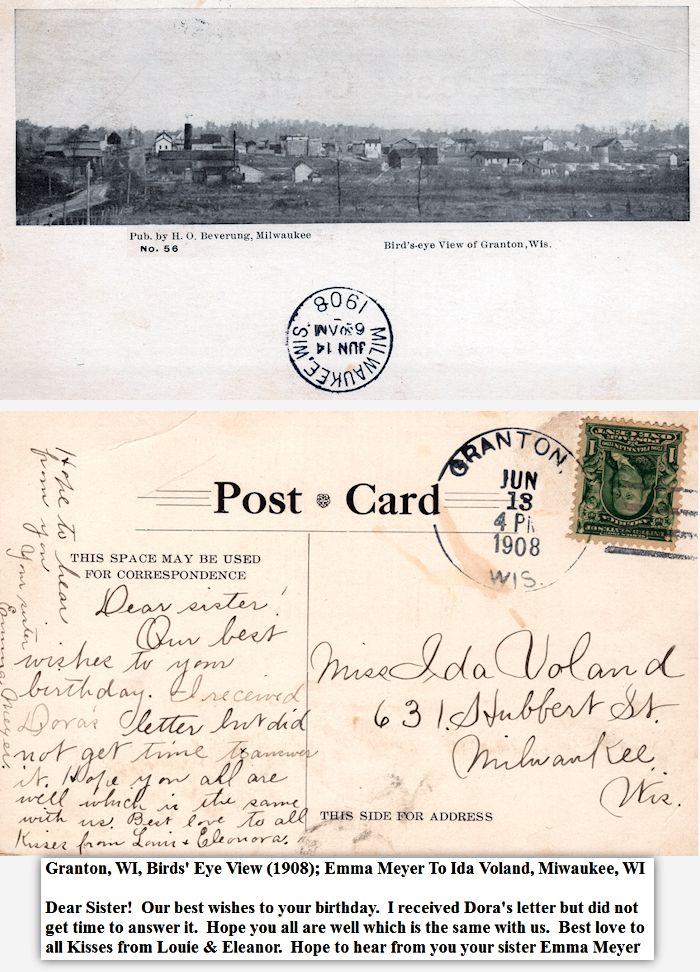 Pub. by H. O. Beverung, Milwaukee
No. 56
Bird's-eye View of Granton, Wis.
MILWAUKEE, WIS.
JUN 14
6 30 AM
1908
Post Card
THIS SPACE MAY BE USED
FOR CORRESPONDENCE
GRANTON,
JUN
13
4 PM
1908
WIS.
POSTAGE
ONE CENT
1 1
Dear sister!
Our best
wishes to your
birthday. I received
Dora's letter but did
not get time to answer
it. Hope you all are
well which is the same
with us. Best love to all
Kisses from Louie & Eleonora.
Hope to hear
from you
Your sister
Emma Meyer.
Miss Ida Voland
631. Hubbert St.
Milwaukee,
Wis.
THIS SIDE FOR ADDRESS
Granton, WI, Birds' Eye View (1908); Emma Meyer To Ida Voland, Miwaukee, WI
Dear Sister! Our best wishes to your birthday. I received Dora's letter but did not
get time to answer it. Hope you all are well which is the same with us. Best love to
all Kisses from Louie & Eleanor. Hope to hear from you your sister Emma Meyer